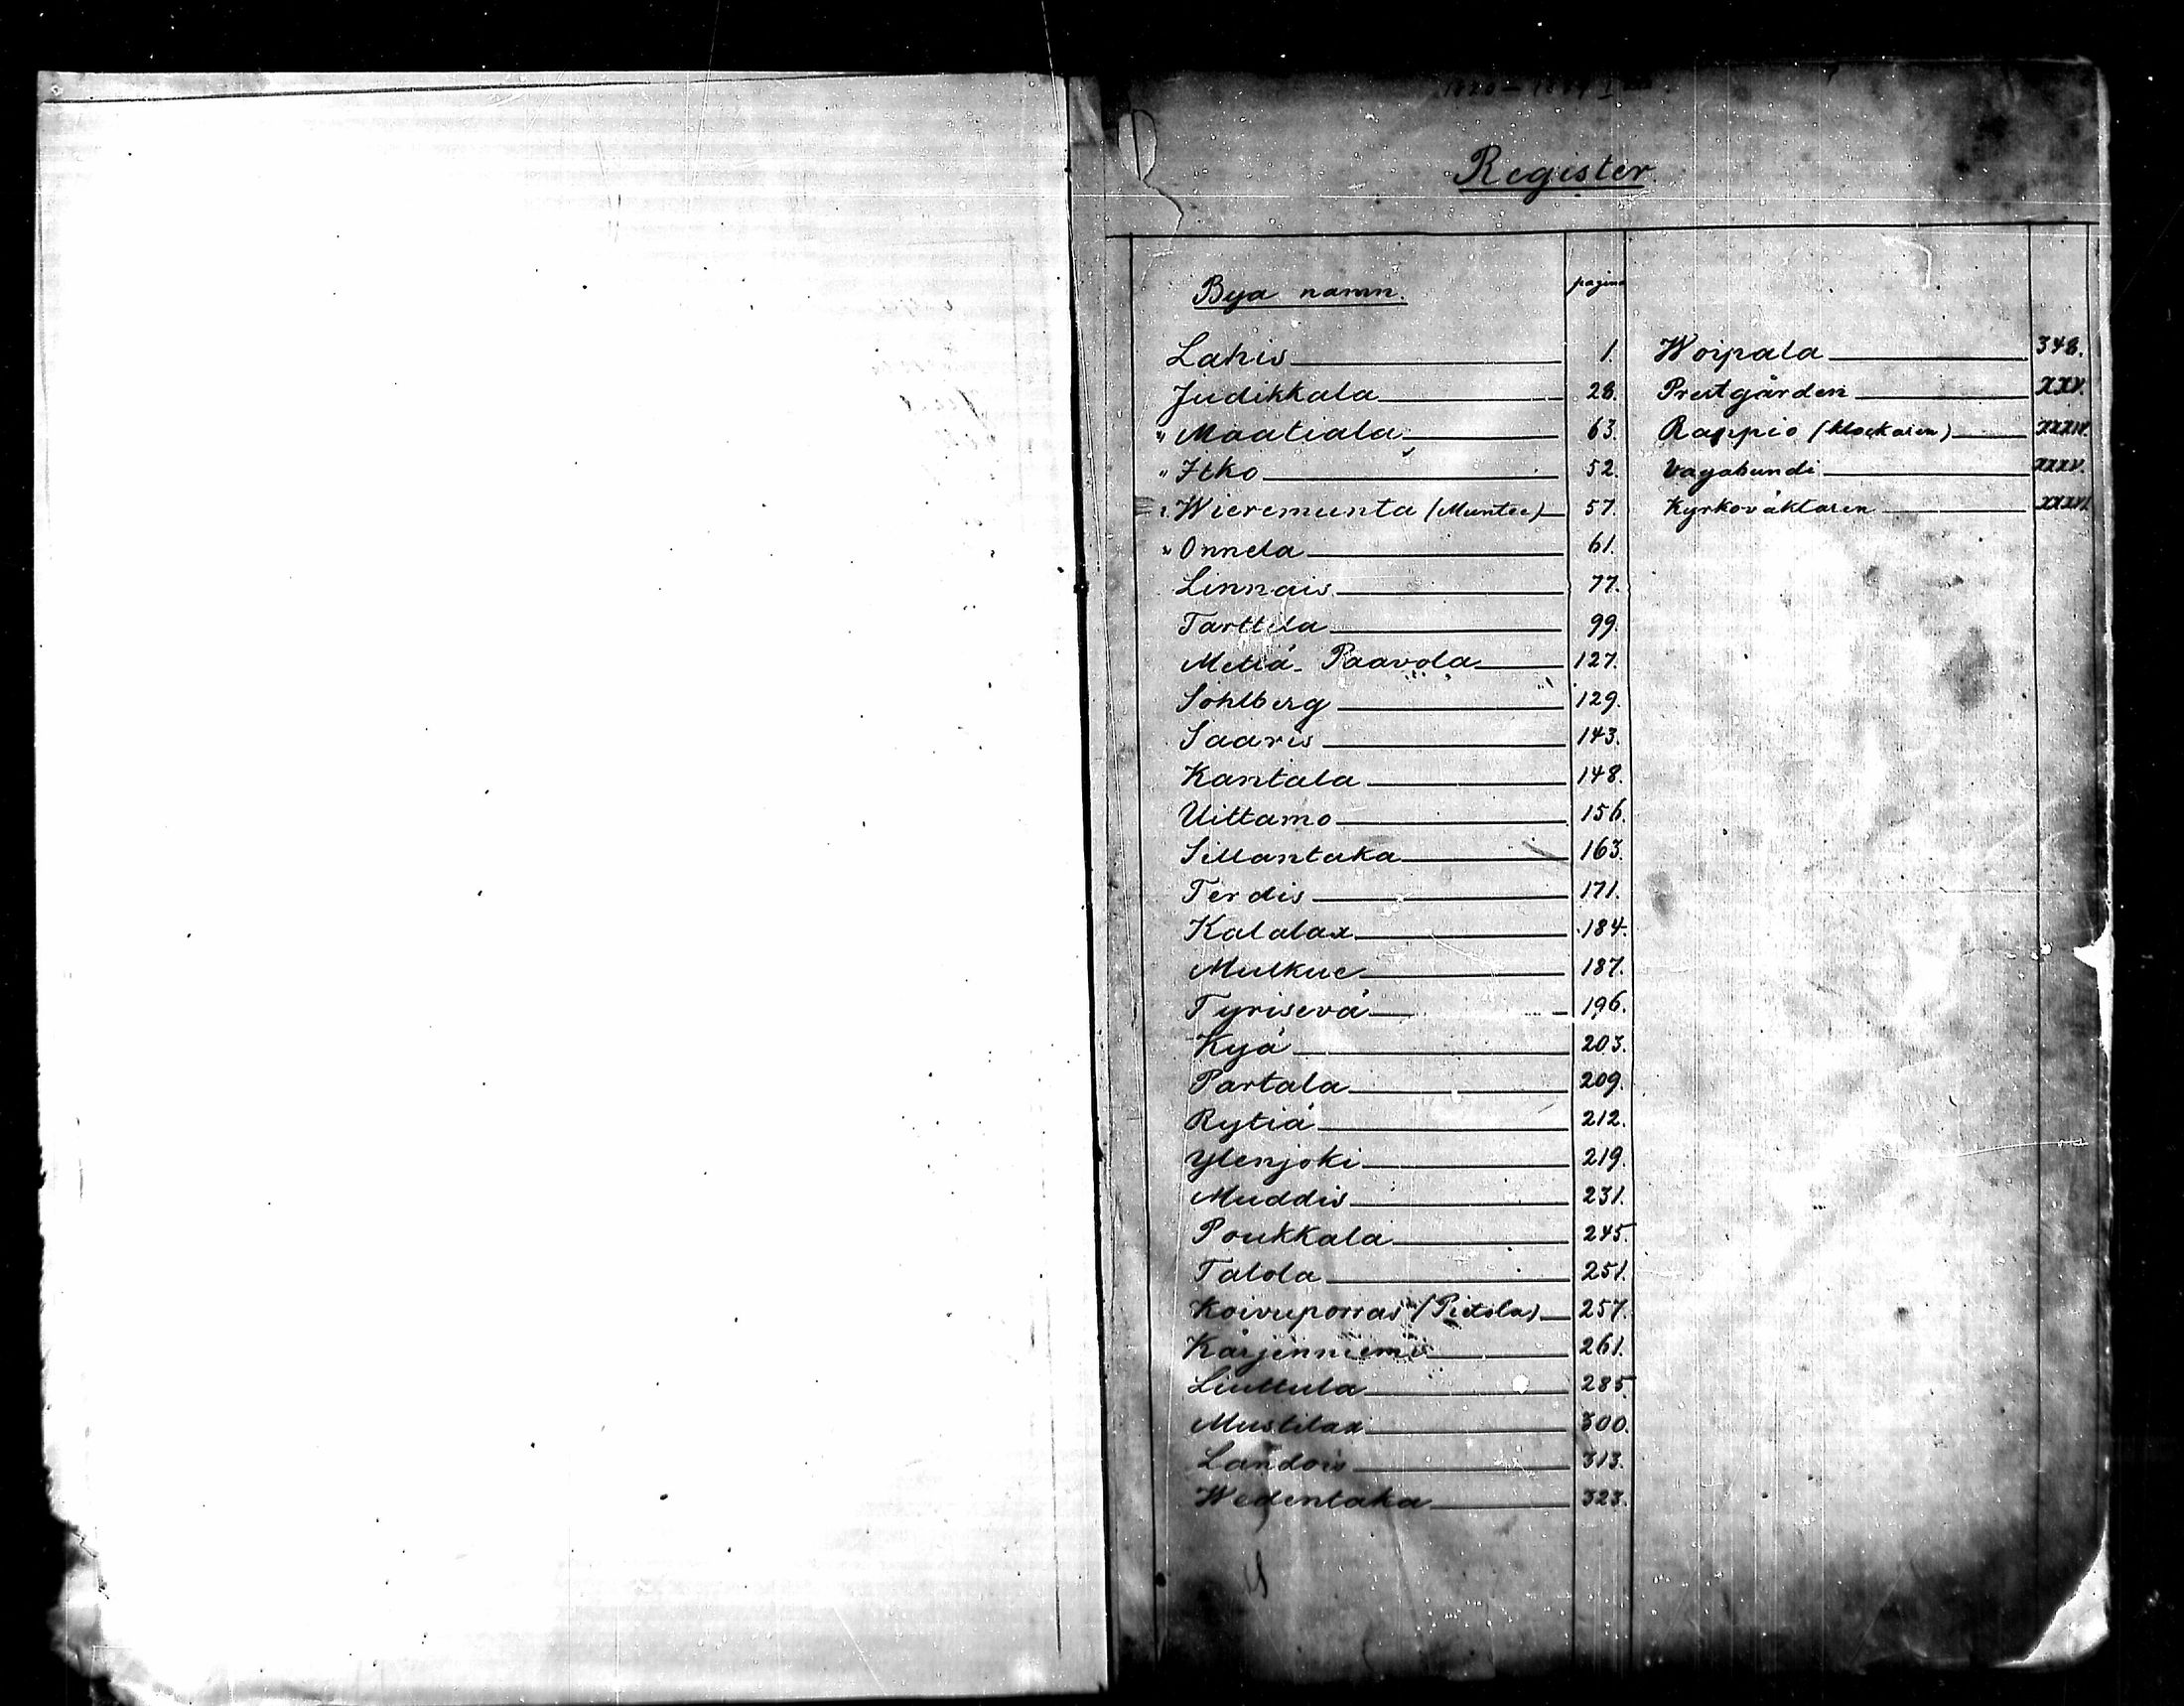 Register
Bya namn. pagina
Lahis 1.
Judikkala 28.
" Maatiala 63.
" Itko 52.
" Wieremunta (Muntee) 57.
" Onnela 61.
Linnais 77.
Tarttila 99.
Metiä-Paavola 127.
Sohlberg 129.
Saaris 143.
Kantala 148.
Uittamo 156.
Sillantaka 163.
Terdis 171.
Kalalax 184.
Mulkue 187.
Tyrisevä 196.
Kyä 203.
Partala 209.
Rytiä 212.
Ylenjoki 219.
Muddis 231.
Poukkala 245.
Talola 251.
Koivuporras (Pietola) 257.
Kärjenniemi 261.
Liuttula 285
Mustilax 300.
Landois 313.
Wedentaka 323.
Woipala 348.
Prestgården XXV.
Rappio (klockaren) XXXIV.
Vagabundi XXXV.
Kyrkoväktaren XXXVI.